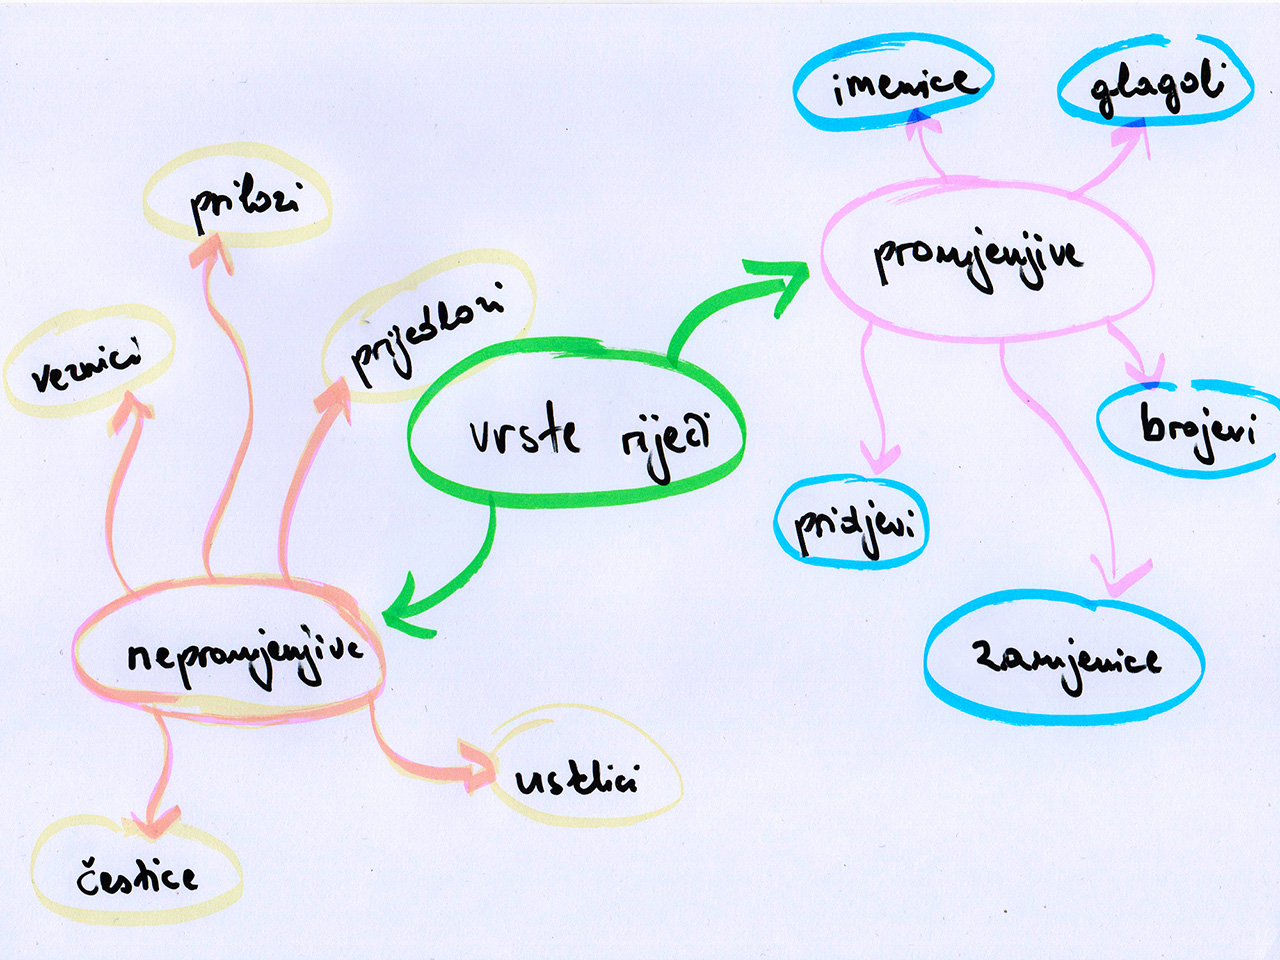 imenice
glagoli
prilozi
promjenjive
prijedlozi
veznici
vrste riječi
brojevi
pridjevi
nepromjenjive
zamjenice
usklici
čestice